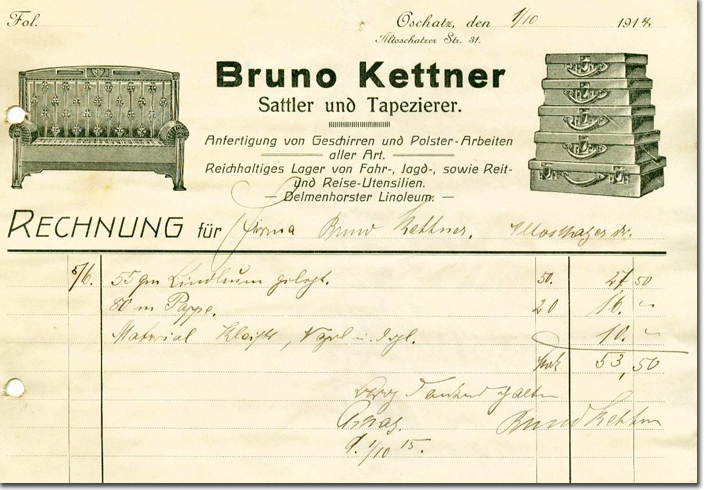 Fol.
Oschatz, den 1/10 1914.
Altoschatzer Str. 31.
Bruno Kettner
Sattler und Tapezierer.
Anfertigung von Geschirren und Polster-Arbeiten
aller Art.
Reichhaltiges Lager von Fahr-, Jagd-, sowie Reit-
und Reise-Utensilien.
— Delmenhorster Linoleum. —
RECHNUNG für Firma Bruno Kettner.
5/6. 55 qm Linoleum gelegt. 50. 27 50
80 m Pappe. 20 16. "
Material Kleister, Nägel u. 10. "
53,50
dankend erhalten
Bruno Kettner
d. 1/10 15.